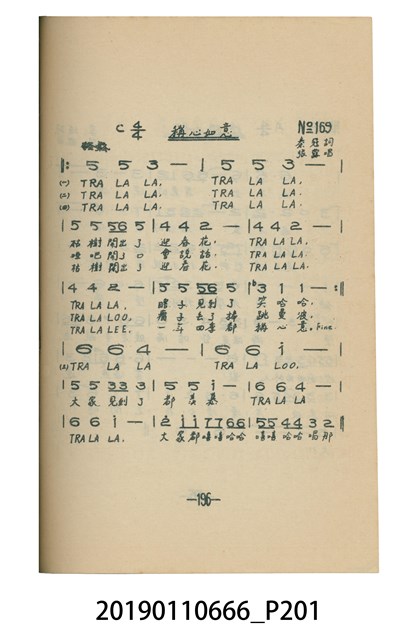 C 4/4 稱心如意 No 169
輕鬆 詞
唱
|: 5 5 3 — | 5 5 3 — |
(一) TRA LA LA. TRA LA LA.
(二) TRA LA LA. TRA LA LA.
(四) TRA LA LA. TRA LA LA.
| 5 5 56 5 | 4 4 2 — | 4 4 2 — |
枯樹開出了 迎春花, TRA LA LA.
啞吧開了口 會說話. TRA LA LA.
枯樹開出了 迎春花. TRA LA LA.
4 4 2 — | 5 5 56 5 | 3 1 1 — :||
TRA LA LA, 瞎子見到了 笑哈哈,
TRA LA LOO, 了 跳曼波,
TRA LA LEE. 一年四季都 稱心意, Fine.
| 6 6 4 — | 6 6 i — |
(三) TRA LA LA TRA LA LOO.
| 5 5 33 3 | 5 5 i — | 6 6 4 — |
大家見到了 都羨慕 TRA LA LA
| 6 6 i — | 2 i i 77 66 | 55 44 3 2 ||
TRA LA LA. 大家都嘻嘻哈哈 嘻嘻哈哈唱那
—196—
20190110666_P201